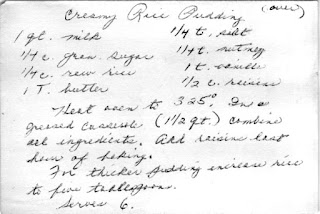 Creamy Rice Pudding (over)
1 qt. milk 1/4 t. salt
1/4 c. gran. sugar 1/4 t. nutmeg
1/4 c. raw rice 1 t. vanilla
1 T. butter 1/2 c. raisins
Heat oven to 325°. In a
greased casserole (1 1/2 qt.) combine
all ingredients. Add raisins last
hour of baking.
For thicker pudding increase rice
to five tablespoons.
Serves 6.